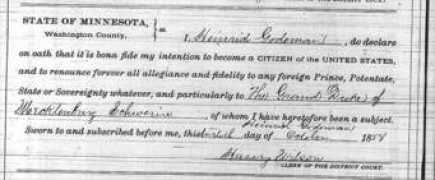 STATE OF MINNESOTA,
Washington County, } = I, Heinrid Godeman, do declare
on oath that it is bona fide my intention to become a CITIZEN of the UNITED STATES,
and to renounce forever all allegiance and fidelity to any foreign Prince, Potentate,
State or Sovereignty whatever, and particularly to The Grand Duke of
Mecklenburg Schwerin, of whom I have heretofore been a subject.
Heinrid Godeman
Sworn to and subscribed before me, this day of October 18
Harvey Wilson
CLERK OF THE DISTRICT COURT.